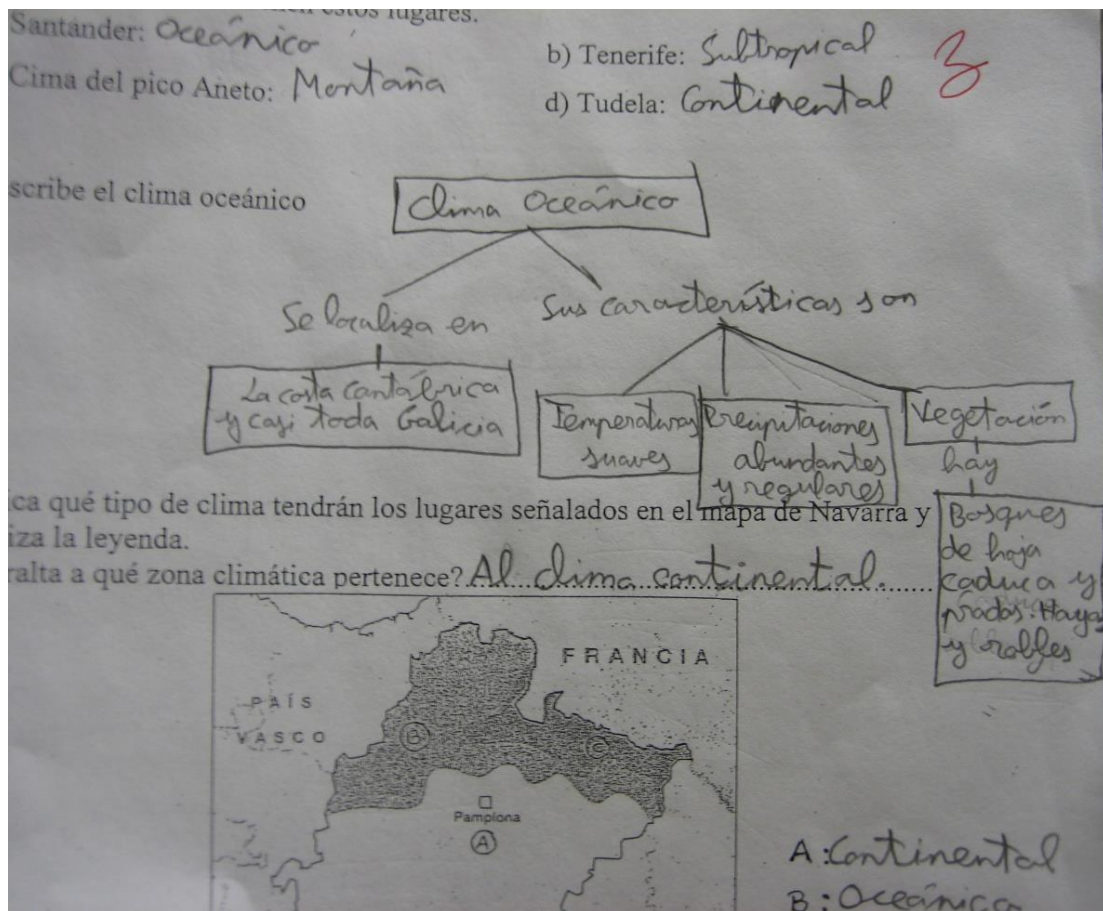 estos lugares.
Santander: Oceánico
b) Tenerife: Subtropical
3
Cima del pico Aneto: Montaña
d) Tudela: Continental
scribe el clima oceánico
Clima Oceánico
Se localiza en
Sus características son
La costa cantábrica
y casi toda Galicia
Temperaturas
suaves
Precipitaciones
abundantes
y regulares
Vegetación
hay
Bosques
de hoja
caduca y
prados. Haya
y robles
ica qué tipo de clima tendrán los lugares señalados en el mapa de Navarra y
iza la leyenda.
ralta a qué zona climática pertenece? Al clima continental.
FRANCIA
PAÍS
VASCO
B
C
Pamplona
A
A: Continental
B: Oceánico